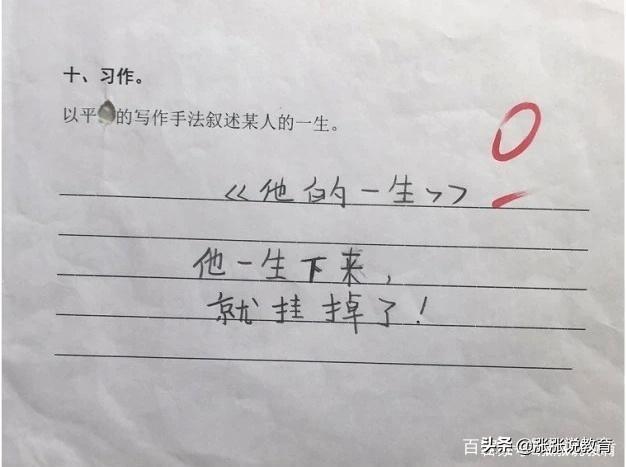 十、习作。
以平 的写作手法叙述某人的一生。
0
《他的一生》
他一生下来，
就挂掉了！
头条 @涨涨说教育